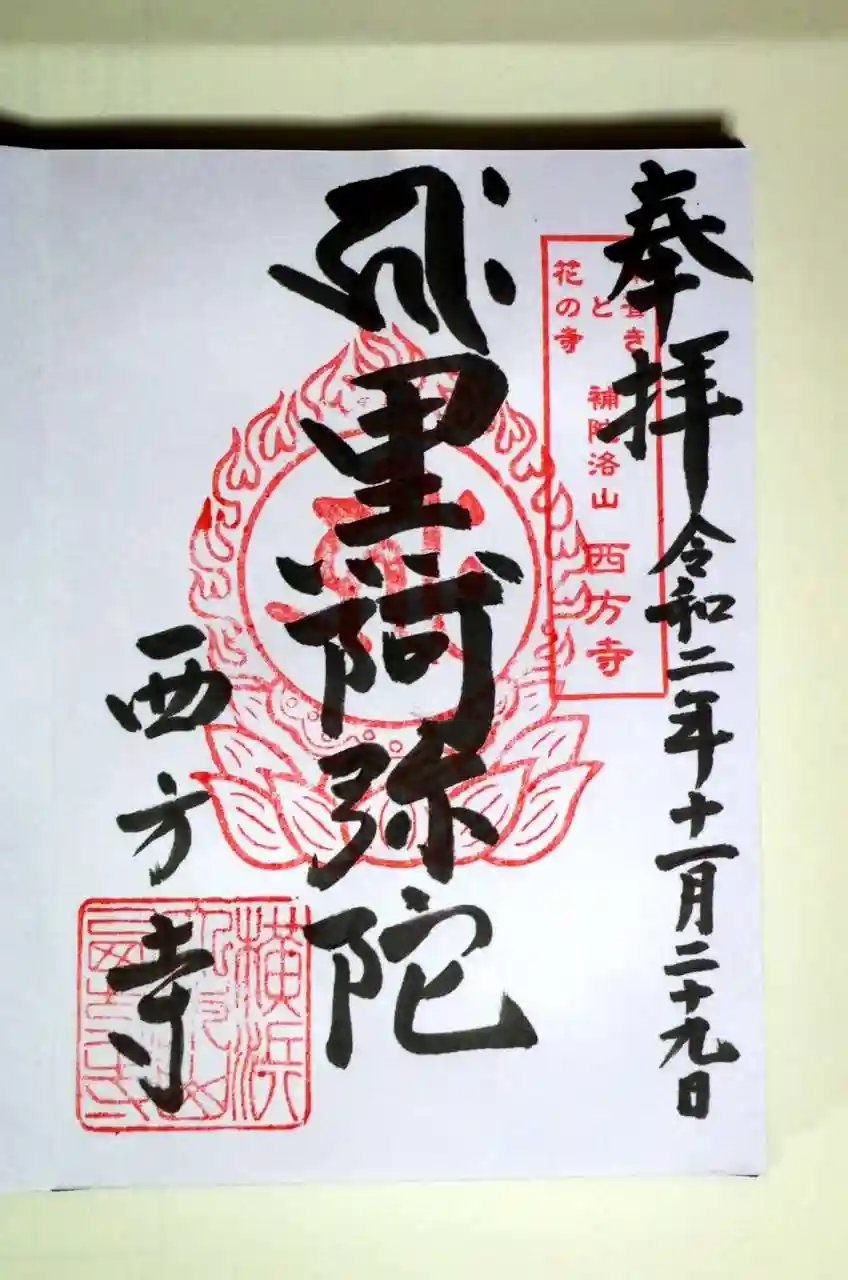 奉拝 令和二年十一月二十九日
葺き
と
花の寺
補陀洛山 西方寺
黒阿弥陀
西方寺
横浜